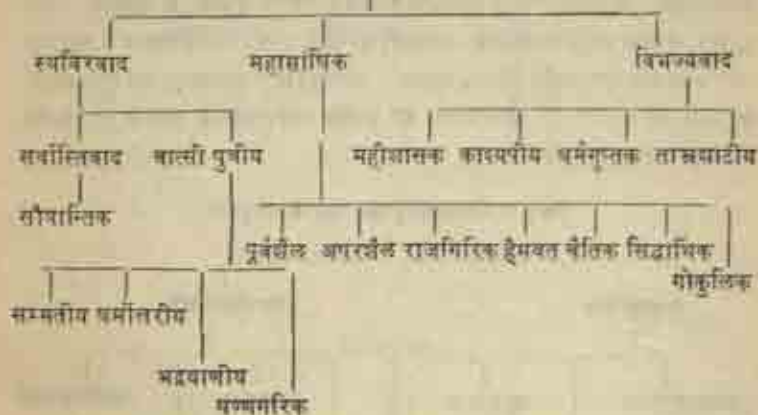 स्थविरवाद महासांघिक विभज्यवाद
सर्वास्तिवाद वात्सी पुत्रीय महीशासक काश्यपीय धर्मगुप्तक ताम्रशाटीय
सौत्रान्तिक
पूर्वशैल अपरशैल राजगिरिक हैमवत चैतिक सिद्धार्थिक
गोकुलिक
सम्मतीय धर्मोत्तरीय
भद्रयाणीय
षण्णगरिक